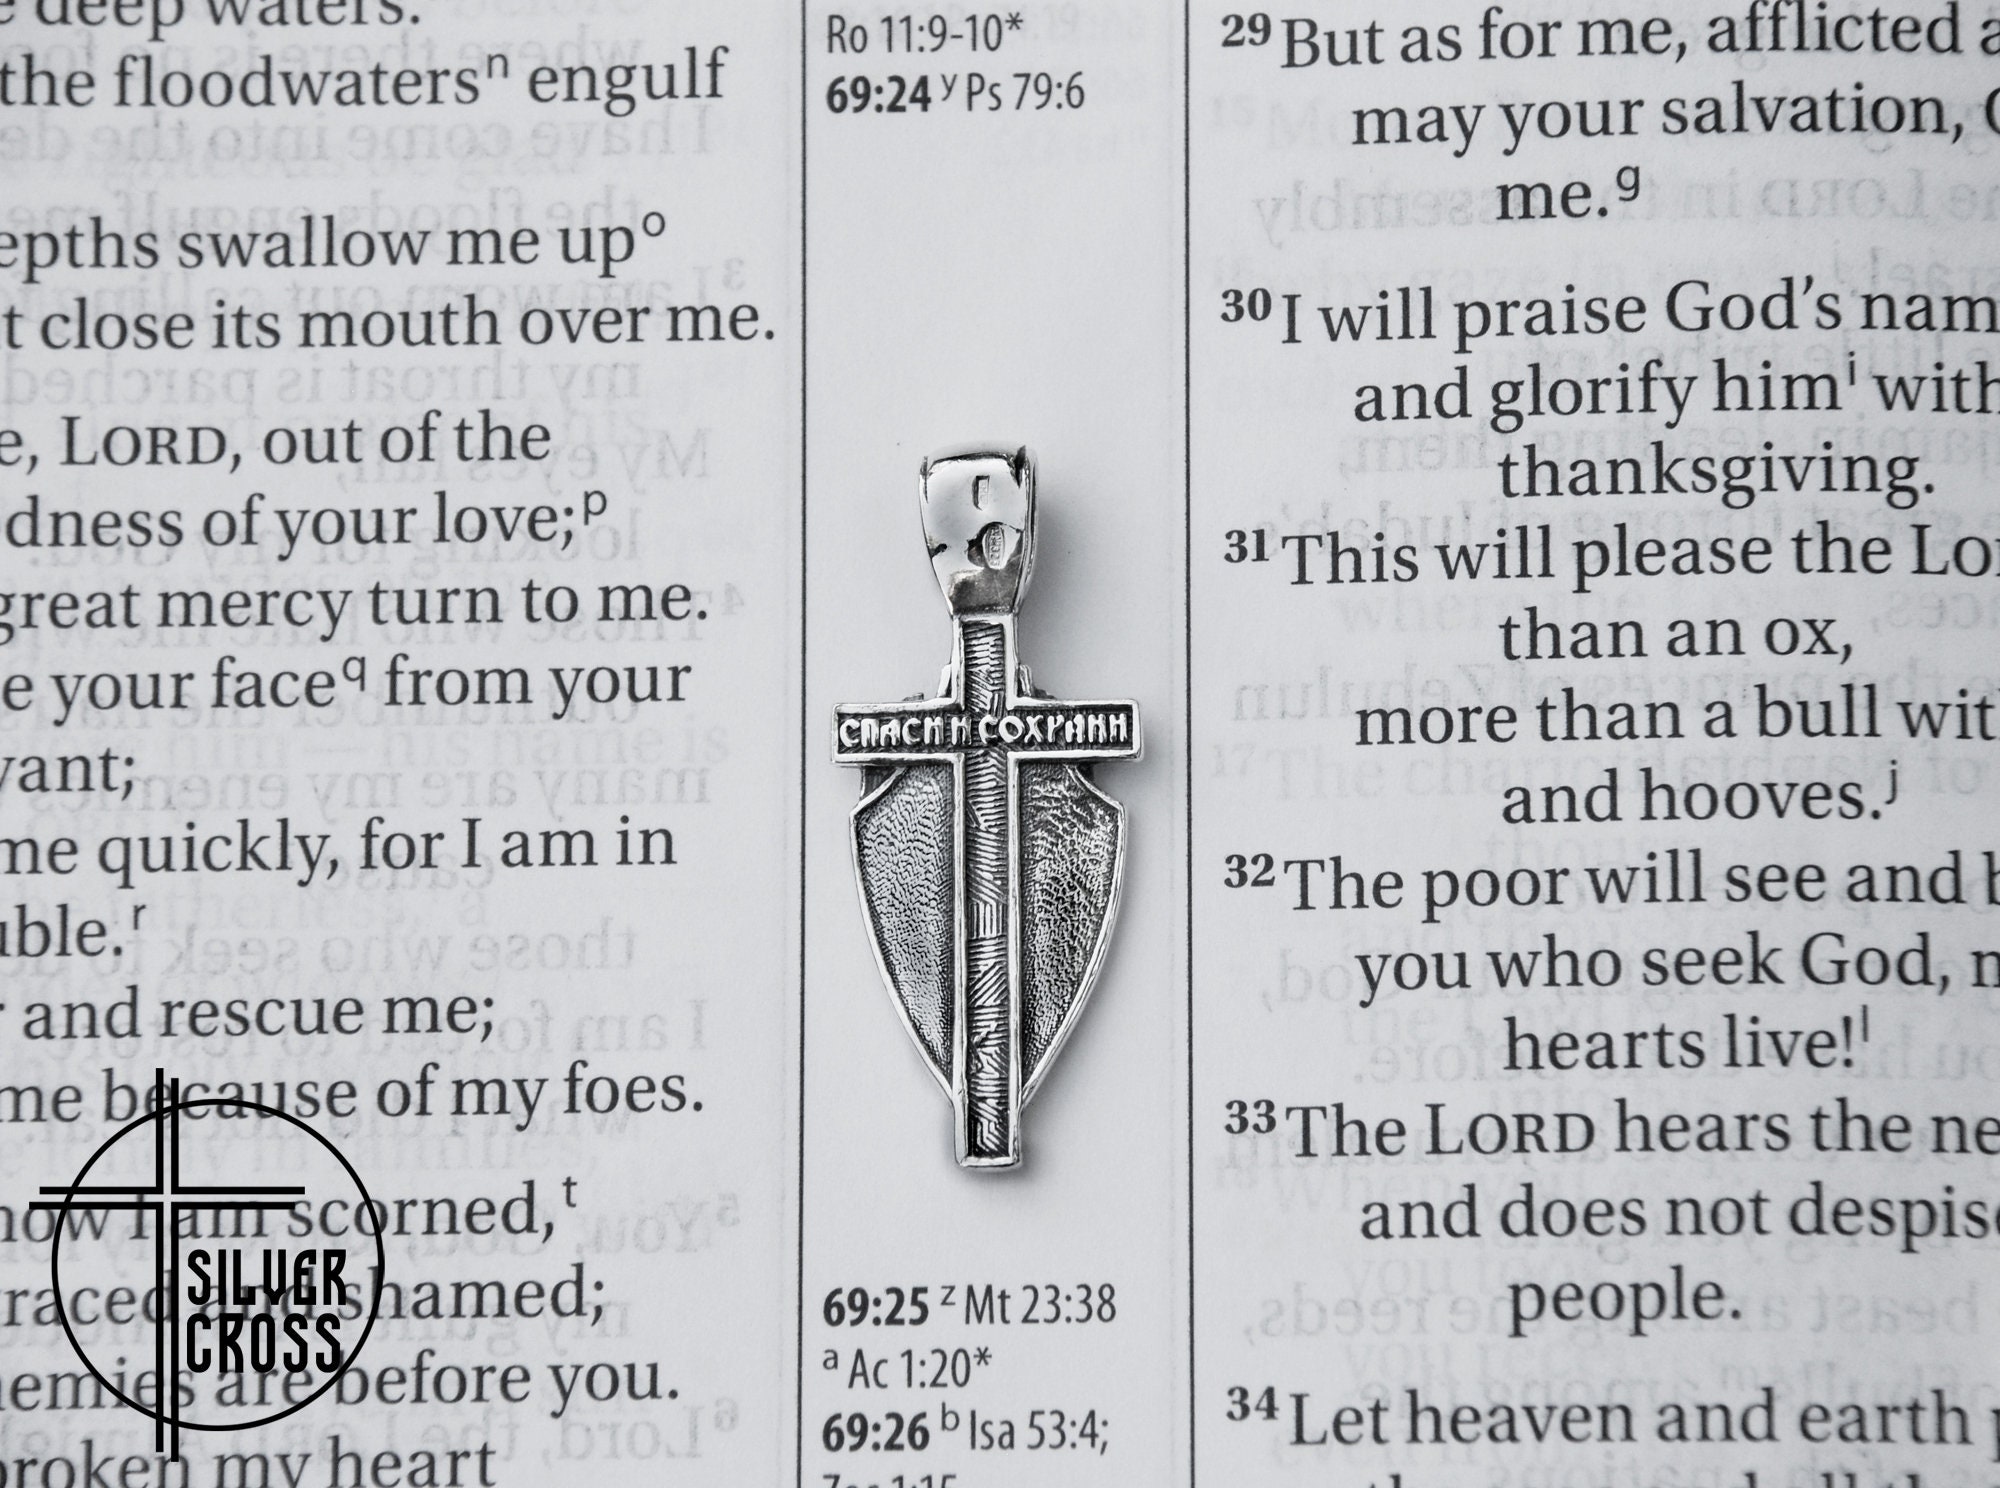 deep waters.
the floodwatersⁿ engulf
epths swallow me upᵒ
t close its mouth over me.
e, LORD, out of the
dness of your love;ᵖ
great mercy turn to me.
e your face^q from your
vant;
me quickly, for I am in
uble.ʳ
and rescue me;
me because of my foes.
now I am scorned,ᵗ
raced and shamed;
nemies are before you.
broken my heart
Ro 11:9-10*
69:24 ʸ Ps 79:6
СПАСИ И СОХРАНИ
69:25 ᶻ Mt 23:38
ᵃ Ac 1:20*
69:26 ᵇ Isa 53:4;
29 But as for me, afflicted a
may your salvation, G
me.ᵍ
30 I will praise God’s nam
and glorify himⁱ with
thanksgiving.
31 This will please the LOR
than an ox,
more than a bull wit
and hooves.ʲ
32 The poor will see and b
you who seek God, m
hearts live!ˡ
33 The LORD hears the ne
and does not despis
people.
34 Let heaven and earth p
SILVER
CROSS